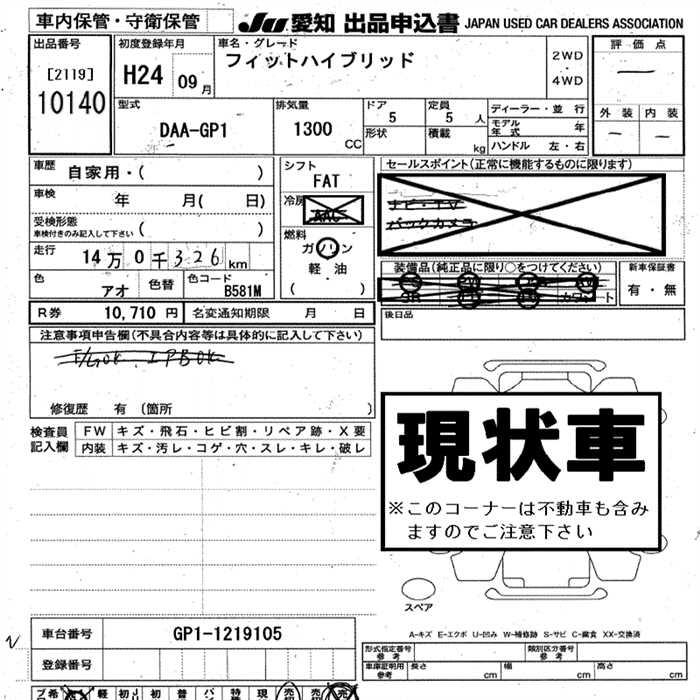 車内保管・守衛保管
JU 愛知 出品申込書 JAPAN USED CAR DEALERS ASSOCIATION
出品番号
[2119]
10140
初度登録年月
H24 09 月
車名・グレード
フィットハイブリッド
2WD
・
4WD
評価点
—
外装 内装
— —
型式
DAA-GP1
排気量
1300 CC
ドア
5
定員
5 人
形状
積載 kg
ディーラー・並行
モデル年式 年
ハンドル 左・右
車歴 自家用・( )
車検 年 月( 日)
受検形態
車検付きのみ記入して下さい ( )
走行 14万0千326km
色 アオ
色替
色コード B581M
シフト
FAT
冷房
AAC
燃料
ガソリン
軽油
( )
セールスポイント(正常に機能するものに限ります)
ナビ・TV
バックカメラ
装備品(純正品に限り○をつけてください)
新車保証書
有・無
後日品
R券 10,710円
名変通知期限 月 日
注意事項申告欄(不具合内容等は具体的に記入して下さい)
修復歴 有(箇所 )
検査員記入欄
FW キズ・飛石・ヒビ割・リペア跡・X要
内装 キズ・汚レ・コゲ・穴・スレ・キレ・破レ
現状車
※このコーナーは不動車も含み
ますのでご注意下さい
スペア
A-キズ E-エクボ U-凹み W-補修跡 S-サビ C-腐食 XX-交換済
車台番号 GP1-1219105
登録番号
形式指定番号
参考
類別区分番号
参考
車庫証明用
参考
長さ cm
幅 cm
高さ cm